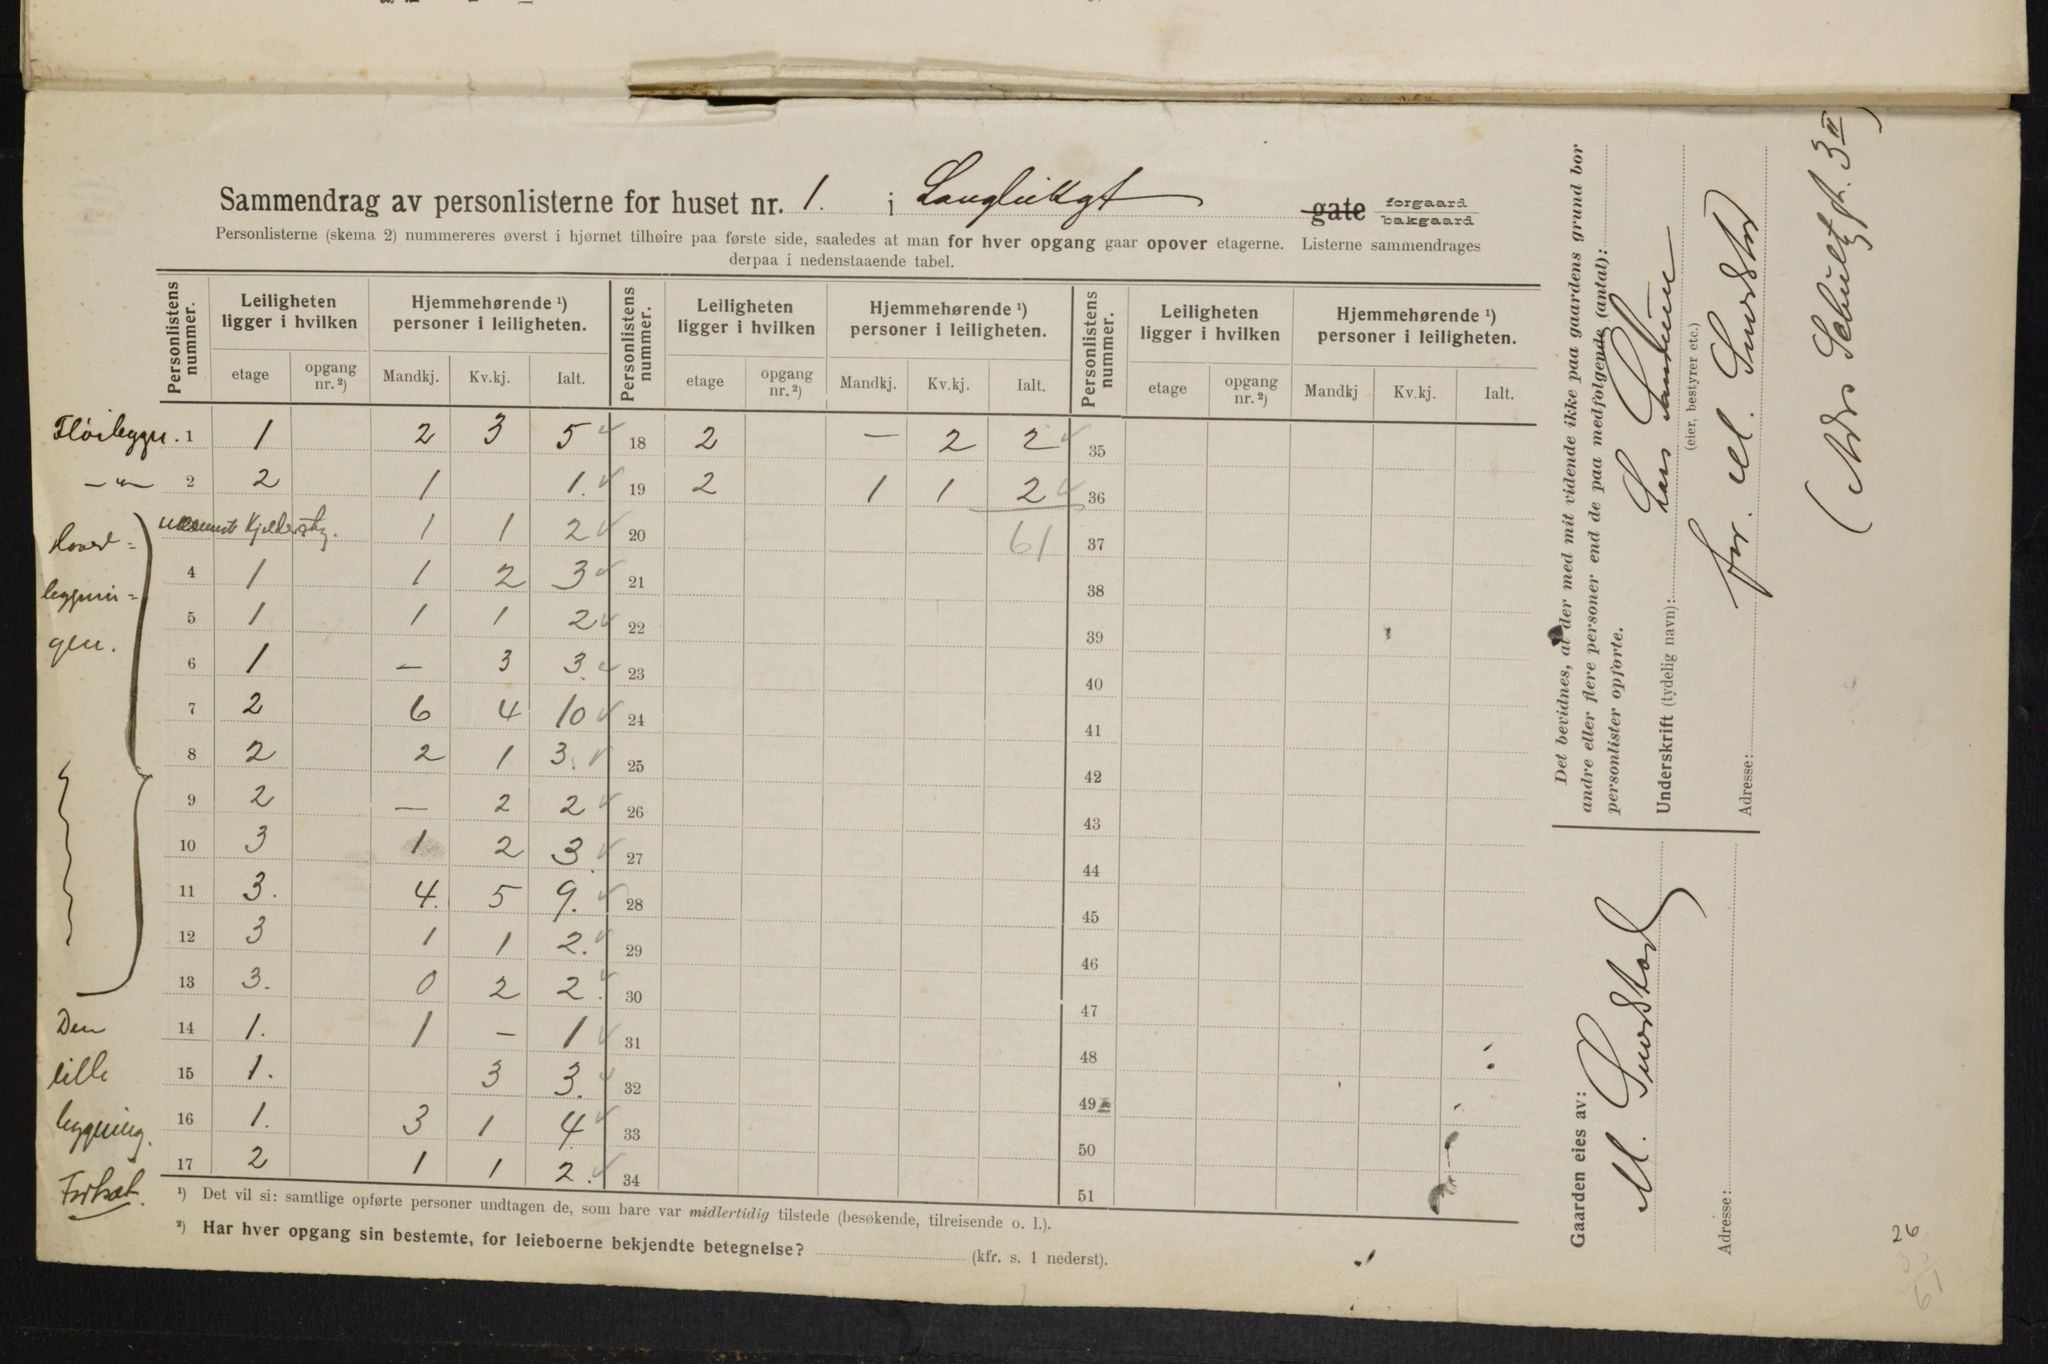 Sammendrag av personlisterne for huset nr. 1. i Langleikgt gate forgaard bakgaard
Personlisterne (skema 2) nummereres øverst i hjørnet tilhøire paa første side, saaledes at man for hver opgang gaar opover etagerne. Listerne sammendrages
derpaa i nedenstaaende tabel.
Personlistens nummer. Leiligheten ligger i hvilken Hjemmehørende ¹) personer i leiligheten. Personlistens nummer. Leiligheten ligger i hvilken Hjemmehørende ¹) personer i leiligheten. Personlistens nummer. Leiligheten ligger i hvilken Hjemmehørende ¹) personer i leiligheten.
etage opgang nr. ²) Mandkj. Kv.kj. Ialt. etage opgang nr. ²) Mandkj. Kv.kj. Ialt. etage opgang nr. ²) Mandkj Kv.kj. Ialt.
Fløibyggn. 1 1 2 3 5 18 2 — 2 2 35
—"— 2 2 1 1. 19 2 1 1 2 36
Kjelderetg. 1 1 2 20 61 37
Hoved=
4 1 1 2 3 21 38
byggnin=
5 1 1 1 2 22 39
gen.
6 1 — 3 3. 23 40
7 2 6 4 10 24 41
8 2 2 1 3. 25 42
9 2 — 2 2 26 43
10 3 1 2 3. 27 44
11 3. 4. 5 9. 28 45
12 3 1 1 2. 29 46
13 3. 0 2 2. 30 47
Den 14 1. 1 — 1 31 48
lille 15 1. 3 3. 32 49
16 1. 3 1 4. 33 50
bygning.
17 2 1 1 2. 34 51
Fortsat.
¹) Det vil si: samtlige opførte personer undtagen de, som bare var midlertidig tilstede (besøkende, tilreisende o. l.).
²) Har hver opgang sin bestemte, for leieboerne bekjendte betegnelse? (kfr. s. 1 nederst).
Det bevidnes, at der med mit vidende ikke paa gaardens grund bor
andre eller flere personer end de paa medfolgende (antal):
personlister opforte.
Underskrift (tydelig navn): Lars
(eier, bestyrer etc.)
for. M.
Adresse:
(Adr. Schultzgt. 3 II)
Gaarden eies av:
M.
Adresse:
26
35
61